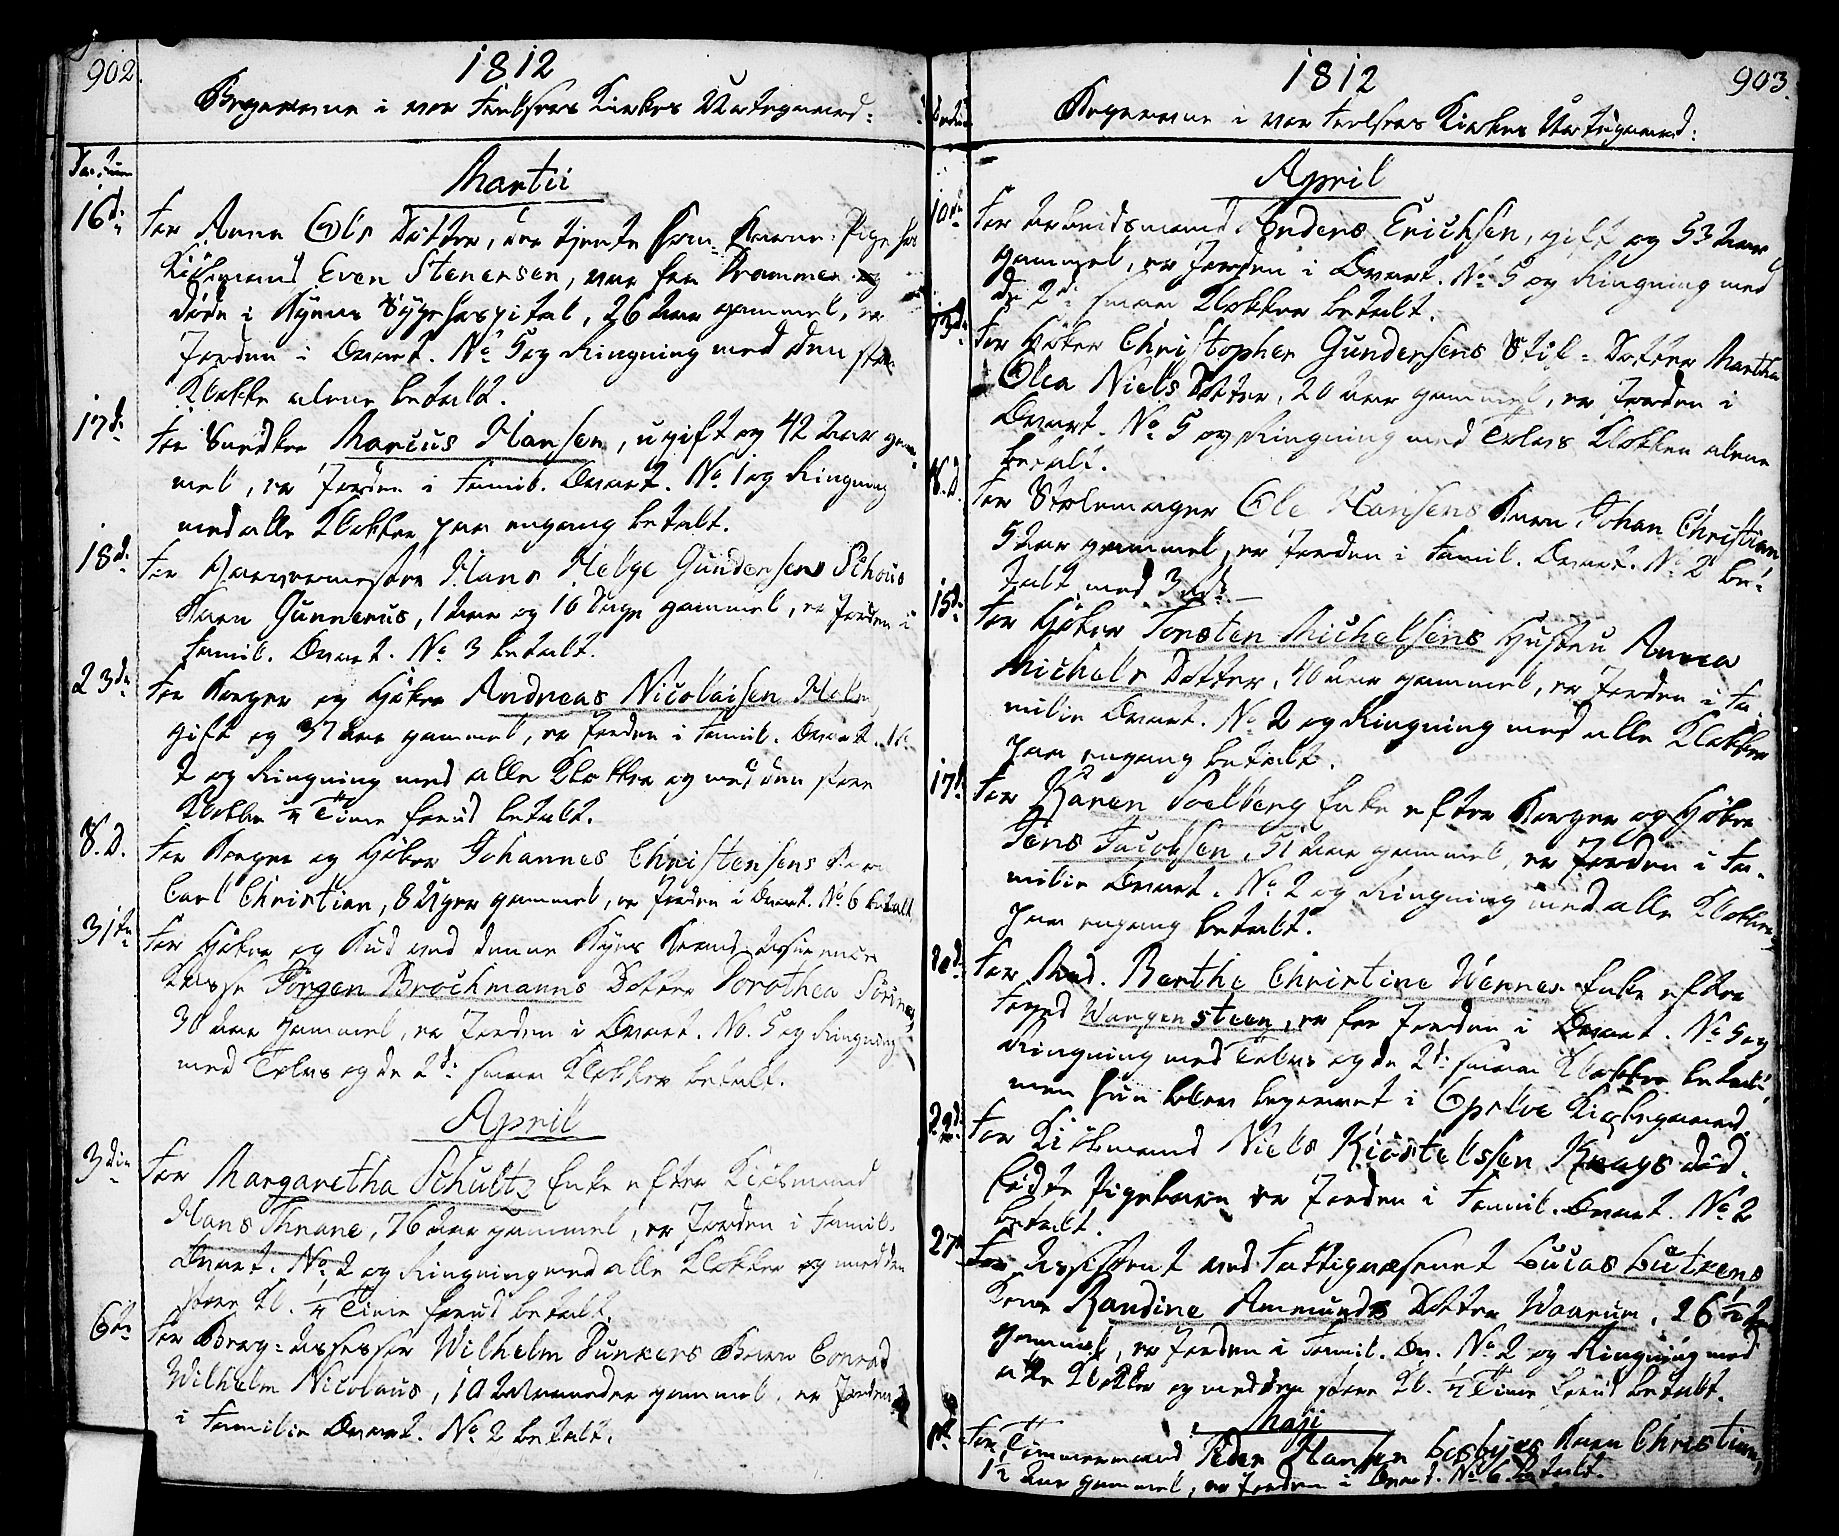 902.
1812
Begravne i vor Frelsers Kirkes Urtegaard:
Datum
Martii
16d: For Anna Ols Dotter, der tjente som Amme-Pige hos
Kiöbmand Even Stenersen, var fra Drammen og
döde i Byens Sygehospital, 26 Aar gammel, er
Jorden i Qvart. No 5 og Ringning med den store
Klokke alene betalt.
17d: For Snedker Marcus Hansen, ugift og 42 Aar gam-
mel, er Jorden i Famil. Qvart. No 1 og Ringning
med alle Klokker paa engang betalt.
18d: For Garvermester Hans Helge Gundersen Schous
Barn Gunnerus, 1 Aar og 16 Dage gammel, er Jorden i
Famil. Qvart. No 3 betalt.
23de For Borger og Höker Andreas Nicolaisen Holm,
gift og 37 Aar gammel, er Jorden i Famil. Qvart. No
2 og Ringning med alle Klokker og med den store
Klokke ¼ Time forud betalt.
S.D. For Borger og Höker Johannes Christensens Barn
Carl Christian, 8 Uger gammel, er Jorden i Qvart. No 6 betalt
31te For Höker og Bud ved denne Byes Brand-Assurance
Kasse Jörgen Brochmanns Dotter Dorothea Sörine,
30 Aar gammel, er Jorden i Qvart. No. 5 og Ringning
med Tolvs og de 2de smaa Klokker betalt.
April
3die For Margaretha Schultz Enke efter Kiöbmand
Hans Thrane, 76 Aar gammel, er Jorden i Famil.
Qvart. No 2 og Ringning med alle Klokker og med den
store Kl. ¼ Time forud betalt.
6te For Berg-Assessor Wilhelm Dunkers Barn Conrad
Wilhelm Nicolaus, 10 Maaneder gammel, er Jorden
i Familie Qvart. No 2 betalt.
903.
1812
Begravne i vor Frelsers Kirkes Urtegaard:
Datum
April
10de For Arbeidsmand Anders Erichsen, gift og 53 Aar
gammel, er Jorden i Qvart. No 5 og Ringning med
de 2de smaa Klokker betalt.
13d: For Höker Christopher Gundersens Stif-Dotter Martha
Olea Niels Dotter, 20 Aar gammel, er Jorden i
Qvart. No 5 og Ringning med Tolvs Klokken alene
betalt.
S.D. For Stolemager Ole Hansens Barn Johan Christian
5 Aar gammel, er Jorden i Famil. Qvart. No 2 be-
talt med 3 rd:
15d: For Höker Torsten Michelsens Hustru Anna
Michels Dotter, 40 Aar gammel, er Jorden i Fa-
milie Qvart. No 2 og Ringning med alle Klokker
paa engang betalt.
17d For Karen Soelberg Enke efter Borger og Höker
Jens Jacobsen, 51 Aar gammel, er Jorden i Fa-
milie Qvart. No 2 og Ringning med alle Klokker
paa engang betalt.
20d: For Mad. Barthe Christine Wenner Enke efter
Foged Wangensteen, er for Jorden i Qvart. No 5 og
Ringning med Tolvs og de 2de smaa Klokker betalt,
men hun blev begravet i Opsloe Kirkegaard.
22d: For Kiöbmand Niels Kiöstelssen Krags död-
födte Pigebarn er Jorden i Famil. Qvart. No 2
betalt.
27d For Assistent ved Fattigvæsenet Lucas Lütkens
Kone Randine Ammunds Dotter Waarum, 26½ Aar
gammel, er Jorden i Famil. Qv. No 2 og Ringning med
alle Klokker og med den store Kl. ¼ Time forud betalt.
Maji
For Tömmermand Peder Hansen Losbyes Barn Christian,
1½ Aar gammel, er Jorden i Qvart. No 6 betalt.